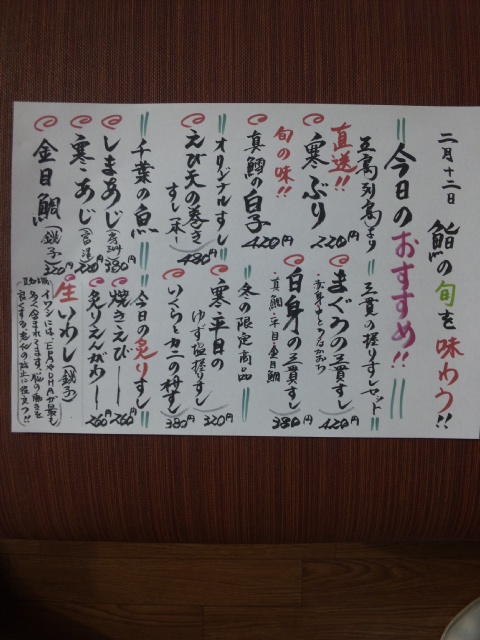 二月十二日
鮨の旬を味わう!!
今日のおすすめ!!
五島列島より
直送!!
寒ぶり
220円
旬の味!!
真鱈の白子
420円
オリジナルすし
えび天の巻き
すし一本
480円
千葉の魚
しまあじ
380円
寒あじ
金目鯛(銚子)
三貫の握りすしセット
まぐろの三貫すし
420円
白身の三貫すし
・真鯛・平目・金目鯛
380円
冬の限定商品
寒平目の
ゆず塩握すし
320円
いくらとカニの枡すし
380円
今日の炙りすし
焼きえび
260円
炙りえんがわ
260円
生いわし(銚子)
イワシにはEPAやDHAが最も
多く含まれてます。脳の働きを
良くする。老化の防止に役立つ!!